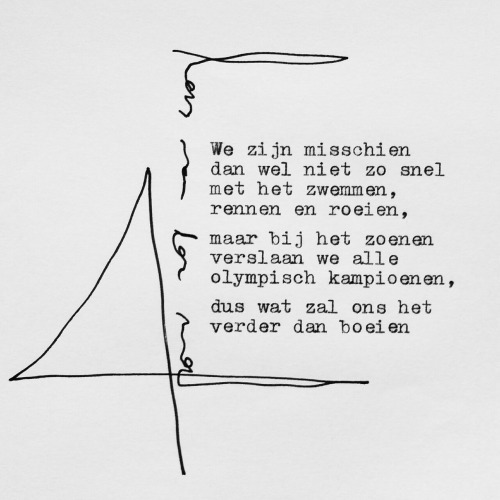 We zijn misschien
dan wel niet zo snel
met het zwemmen,
rennen en roeien,
maar bij het zoenen
verslaan we alle
olympisch kampioenen,
dus wat zal ons het
verder dan boeien